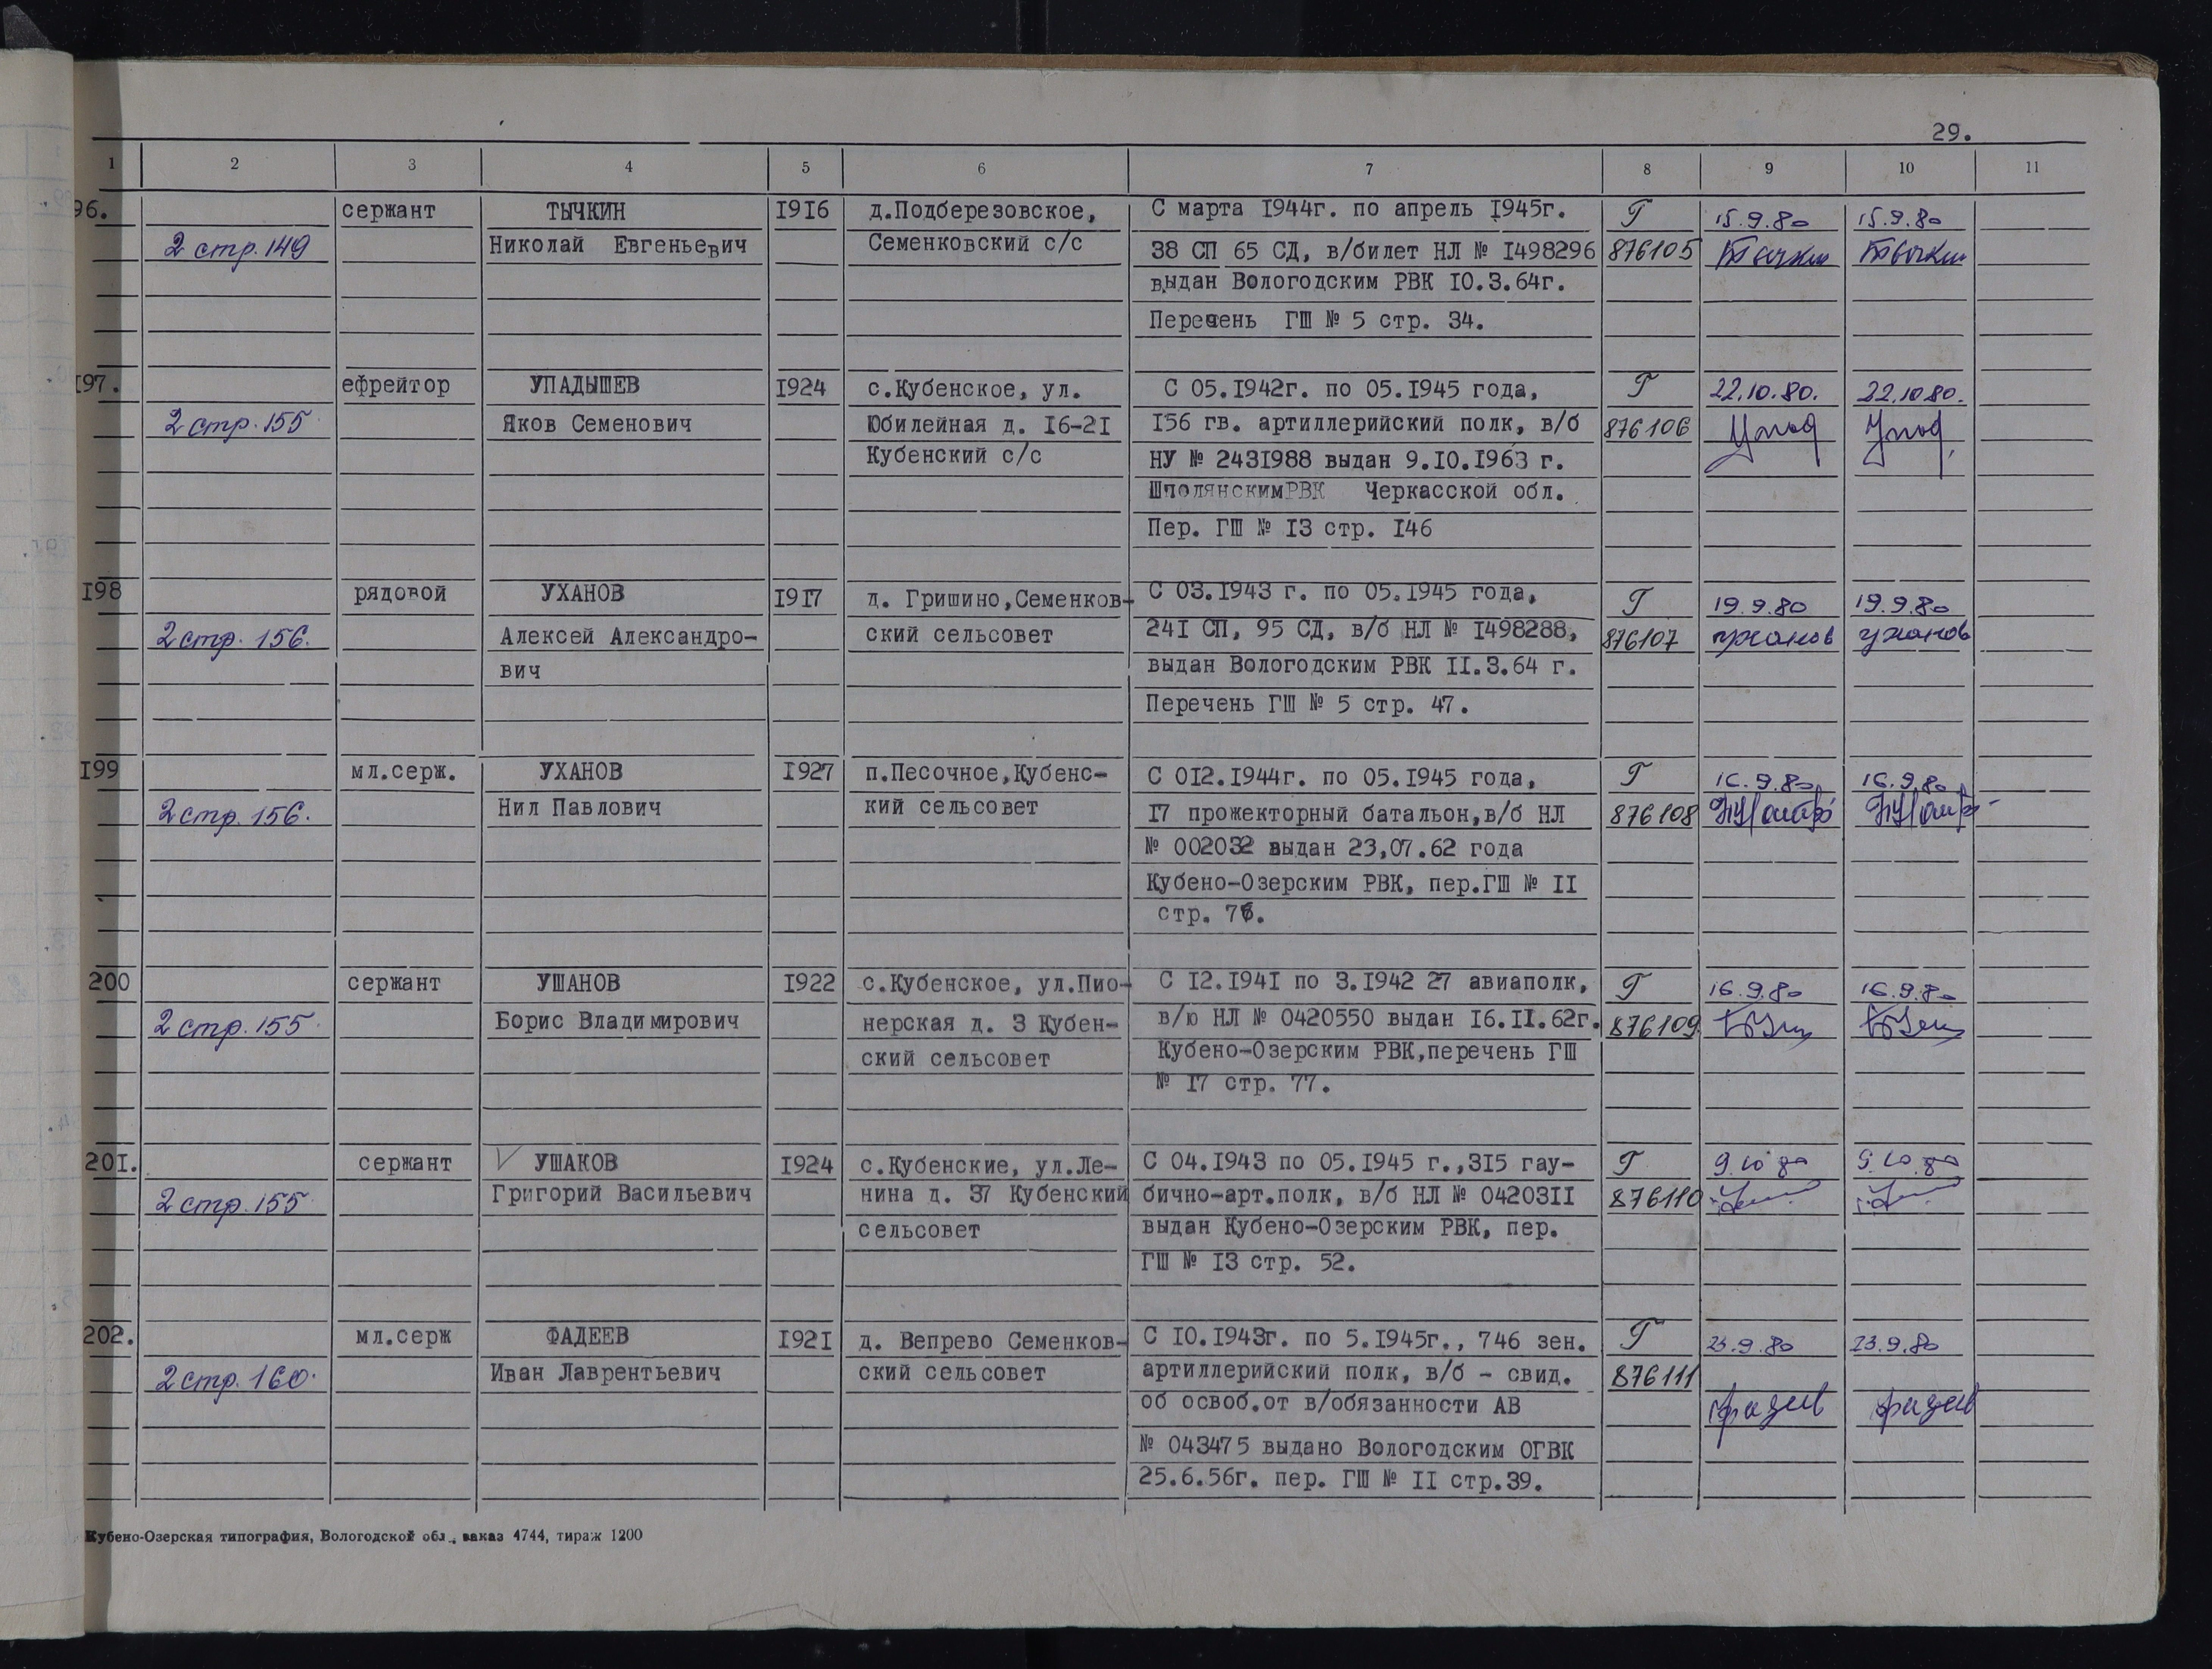 29.
1 2 3 4 5 6 7 8 9 10 11
96. сержант ТЫЧКИН 1916 д.Подберезовское, С марта 1944г. по апрель 1945г. Г 15.9.80 15.9.80
2 стр. 149 Николай Евгеньевич Семенковский с/с 38 СП 65 СД, в/билет НЛ № 1498296 876105
выдан Вологодским РВК 10.3.64г.
Перечень ГШ № 5 стр. 34.
197. ефрейтор УПАДЫШЕВ 1924 с.Кубенское, ул. С 05.1942г. по 05.1945 года, Г 22.10.80. 22.10.80.
2 стр. 155 Яков Семенович Юбилейная д. 16-21 156 гв. артиллерийский полк, в/б 876106 Упад Упад
Кубенский с/с НУ № 2431988 выдан 9.10.1963 г.
Шполянским РВК Черкасской обл.
Пер. ГШ № 13 стр. 146
198 рядовой УХАНОВ 1917 д. Гришино,Семенков- С 03.1943 г. по 05.1945 года, Г 19.9.80 19.9.80
2 стр. 156. Алексей Александро- ский сельсовет 241 СП, 95 СД, в/б НЛ № 1498288, 876107 уханов уханов
вич выдан Вологодским РВК 11.3.64 г.
Перечень ГШ № 5 стр. 47.
199 мл.серж. УХАНОВ 1927 п.Песочное,Кубенс- С 012.1944г. по 05.1945 года, Г 16.9.80 16.9.80
2 стр. 156. Нил Павлович кий сельсовет 17 прожекторный батальон,в/б НЛ 876108
№ 002032 выдан 23,07.62 года
Кубено-Озерским РВК, пер.ГШ № 11
стр.
200 сержант УШАНОВ 1922 с.Кубенское, ул.Пио- С 12.1941 по 3.1942 27 авиаполк, Г 16.9.80 16.9.80
2 стр. 155 Борис Владимирович нерская д. 3 Кубен- в/ю НЛ № 0420550 выдан 16.11.62г. 876109
ский сельсовет Кубено-Озерским РВК,перечень ГШ
№ 17 стр. 77.
201. сержант УШАКОВ 1924 с.Кубенские, ул.Ле- С 04.1943 по 05.1945 г.,315 гау- Г 9.10 80 9.10.80
2 стр. 155 Григорий Васильевич нина д. 37 Кубенский бично-арт.полк, в/б НЛ № 0420311 876110
сельсовет выдан Кубено-Озерским РВК, пер.
ГШ № 13 стр. 52.
202. мл.серж ФАДЕЕВ 1921 д. Вепрево Семенков- С 10.1943г. по 5.1945г., 746 зен. Г 23.9.80 23.9.80
2 стр. 160. Иван Лаврентьевич ский сельсовет артиллерийский полк, в/б - свид. 876111
об освоб.от в/обязанности АВ фадеев фадеев
№ 043475 выдано Вологодским ОГВК
25.6.56г. пер. ГШ № 11 стр.39.
Кубено-Озерская типография, Вологодской обл., заказ 4744, тираж 1200